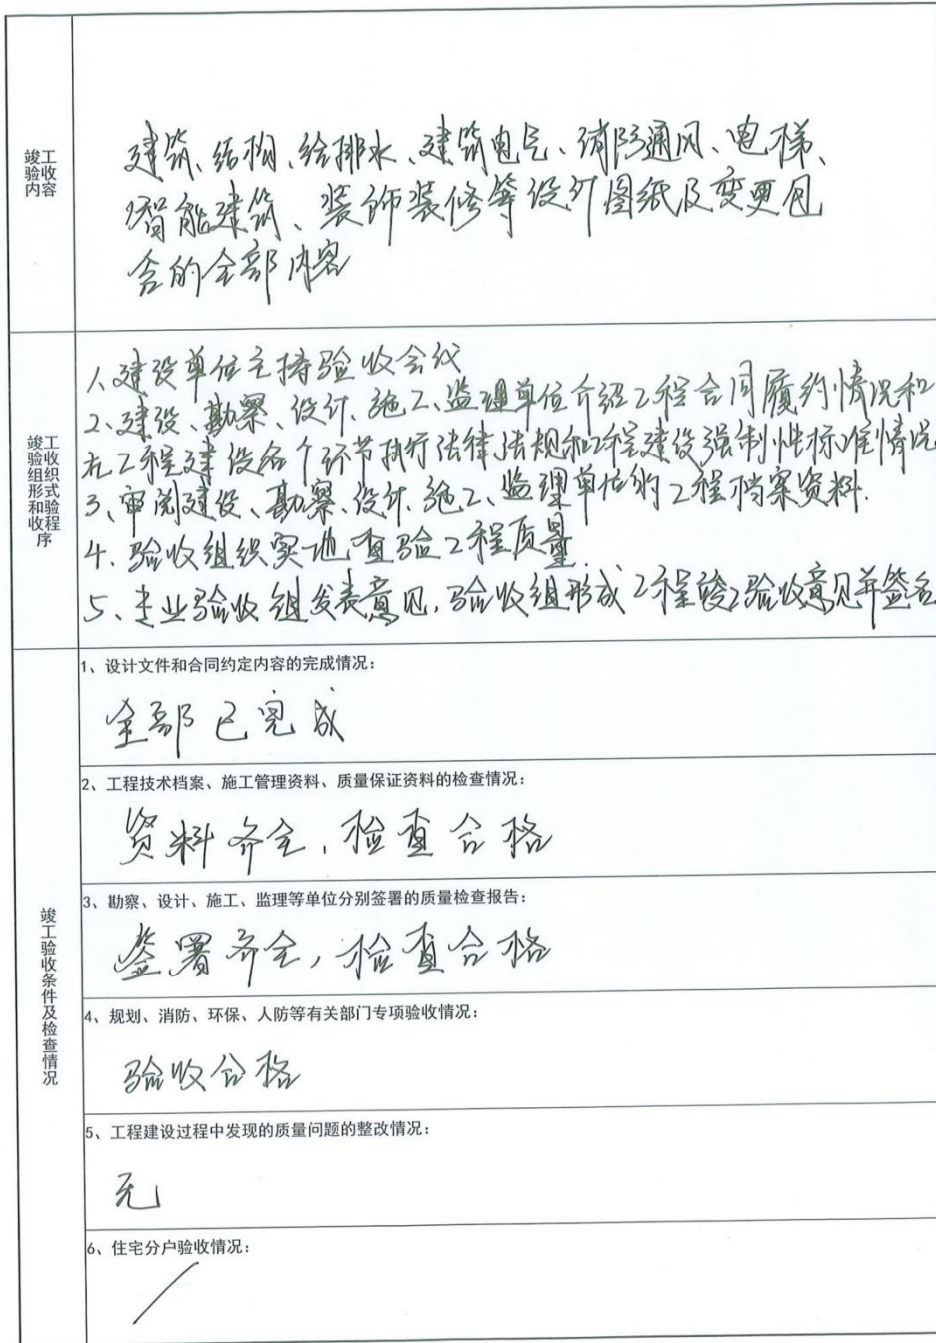 竣工验收内容
建筑、结构、给排水、建筑电气、消防通风、电梯、
智能建筑、装饰装修等设计图纸及变更包
含的全部内容
竣工验收组织形式和验收程序
1、建设单位主持验收会议
2、建设、勘察、设计、施工、监理单位介绍工程合同履约情况和
在工程建设各个环节执行法律法规和工程建设强制性标准情况
3、审阅建设、勘察、设计、施工、监理单位的工程档案资料.
4、验收组织实地查验工程质量
5、专业验收组发表意见,验收组形成工程竣工验收意见并签名
竣工验收条件及检查情况
1、设计文件和合同约定内容的完成情况:
全部已完成
2、工程技术档案、施工管理资料、质量保证资料的检查情况:
资料齐全,检查合格
3、勘察、设计、施工、监理等单位分别签署的质量检查报告:
签署齐全,检查合格
4、规划、消防、环保、人防等有关部门专项验收情况:
验收合格
5、工程建设过程中发现的质量问题的整改情况:
无
6、住宅分户验收情况:
/